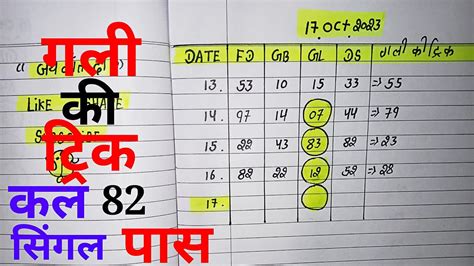 17 OCT 2023
गली
की
ट्रिक
कल 82
सिंगल पास
LIKE
DATE FD GB GL DS गली की ट्रिक
13. 53 10 15 33 ⇒ 55
14. 97 14 07 44 ⇒ 79
15. 22 43 83 82 ⇒ 23
16. 82 22 12 52 ⇒ 28
17.